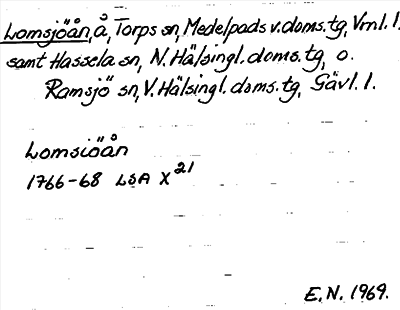 Lomsjöån, å, Torps sn, Medelpads v. doms. tg, Vrnl. l.
samt Hassela sn, N. Hälsingl. doms. tg, o.
Ramsjö sn, V. Hälsingl. doms. tg, Gävl. l.
Lomsiöån
1766-68 LSA X 21
E. N. 1969.